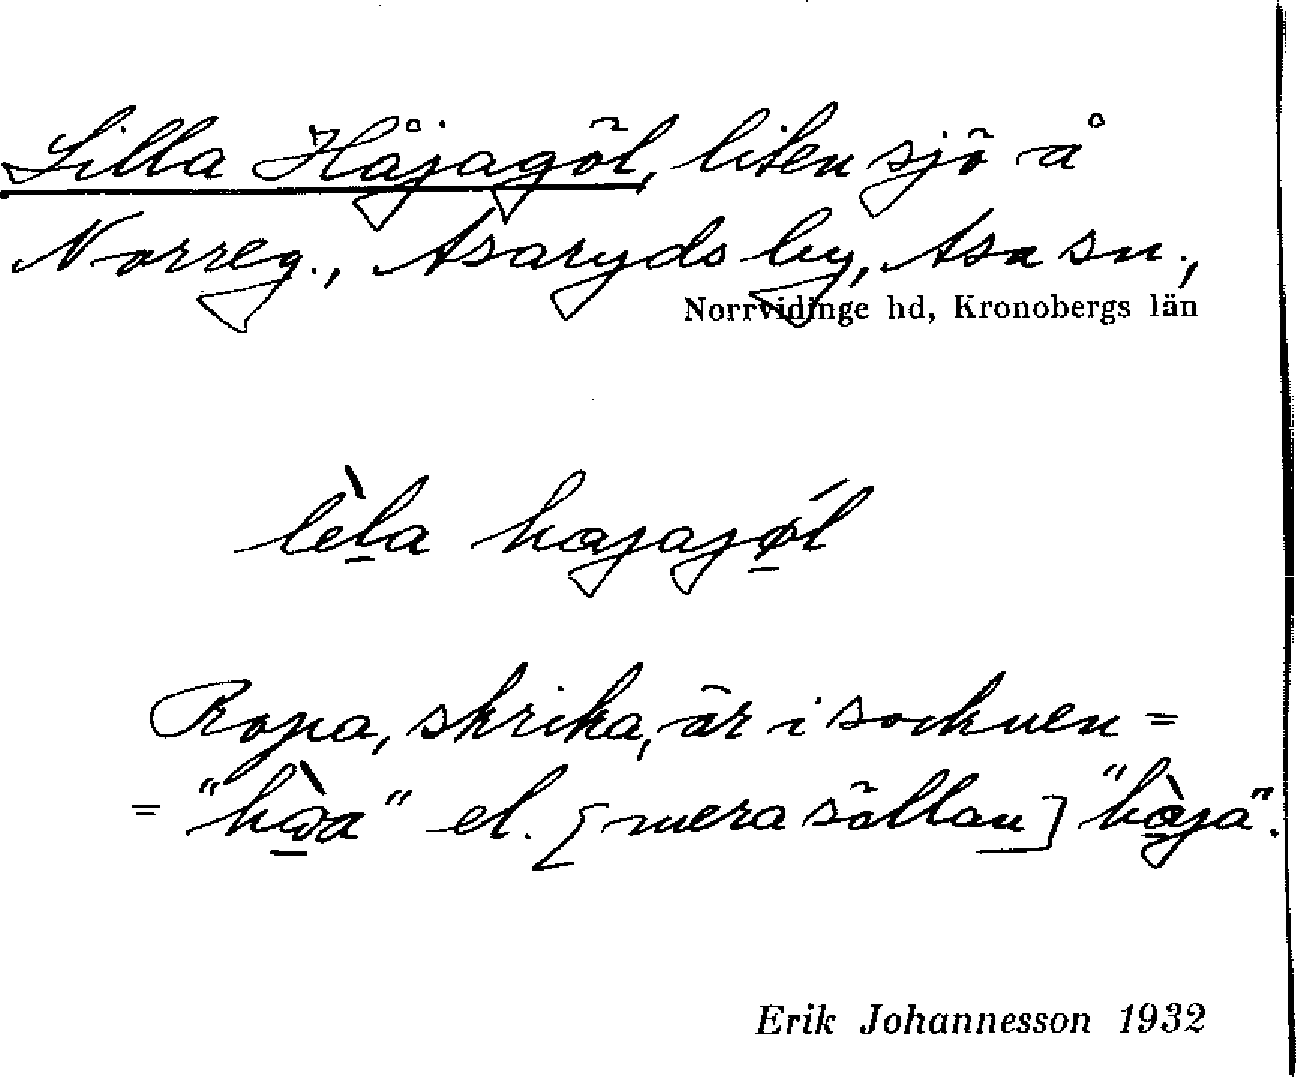 Lilla Håjagöl, liten sjö å
Norreg., Asaryds by, Asa sn.,
Norrvidinge hd, Kronobergs län
lèla hajajøl
Ropa, skrika, är i socknen =
= "hòa" el. [mera sällan] "hàja".
Erik Johannesson 1932